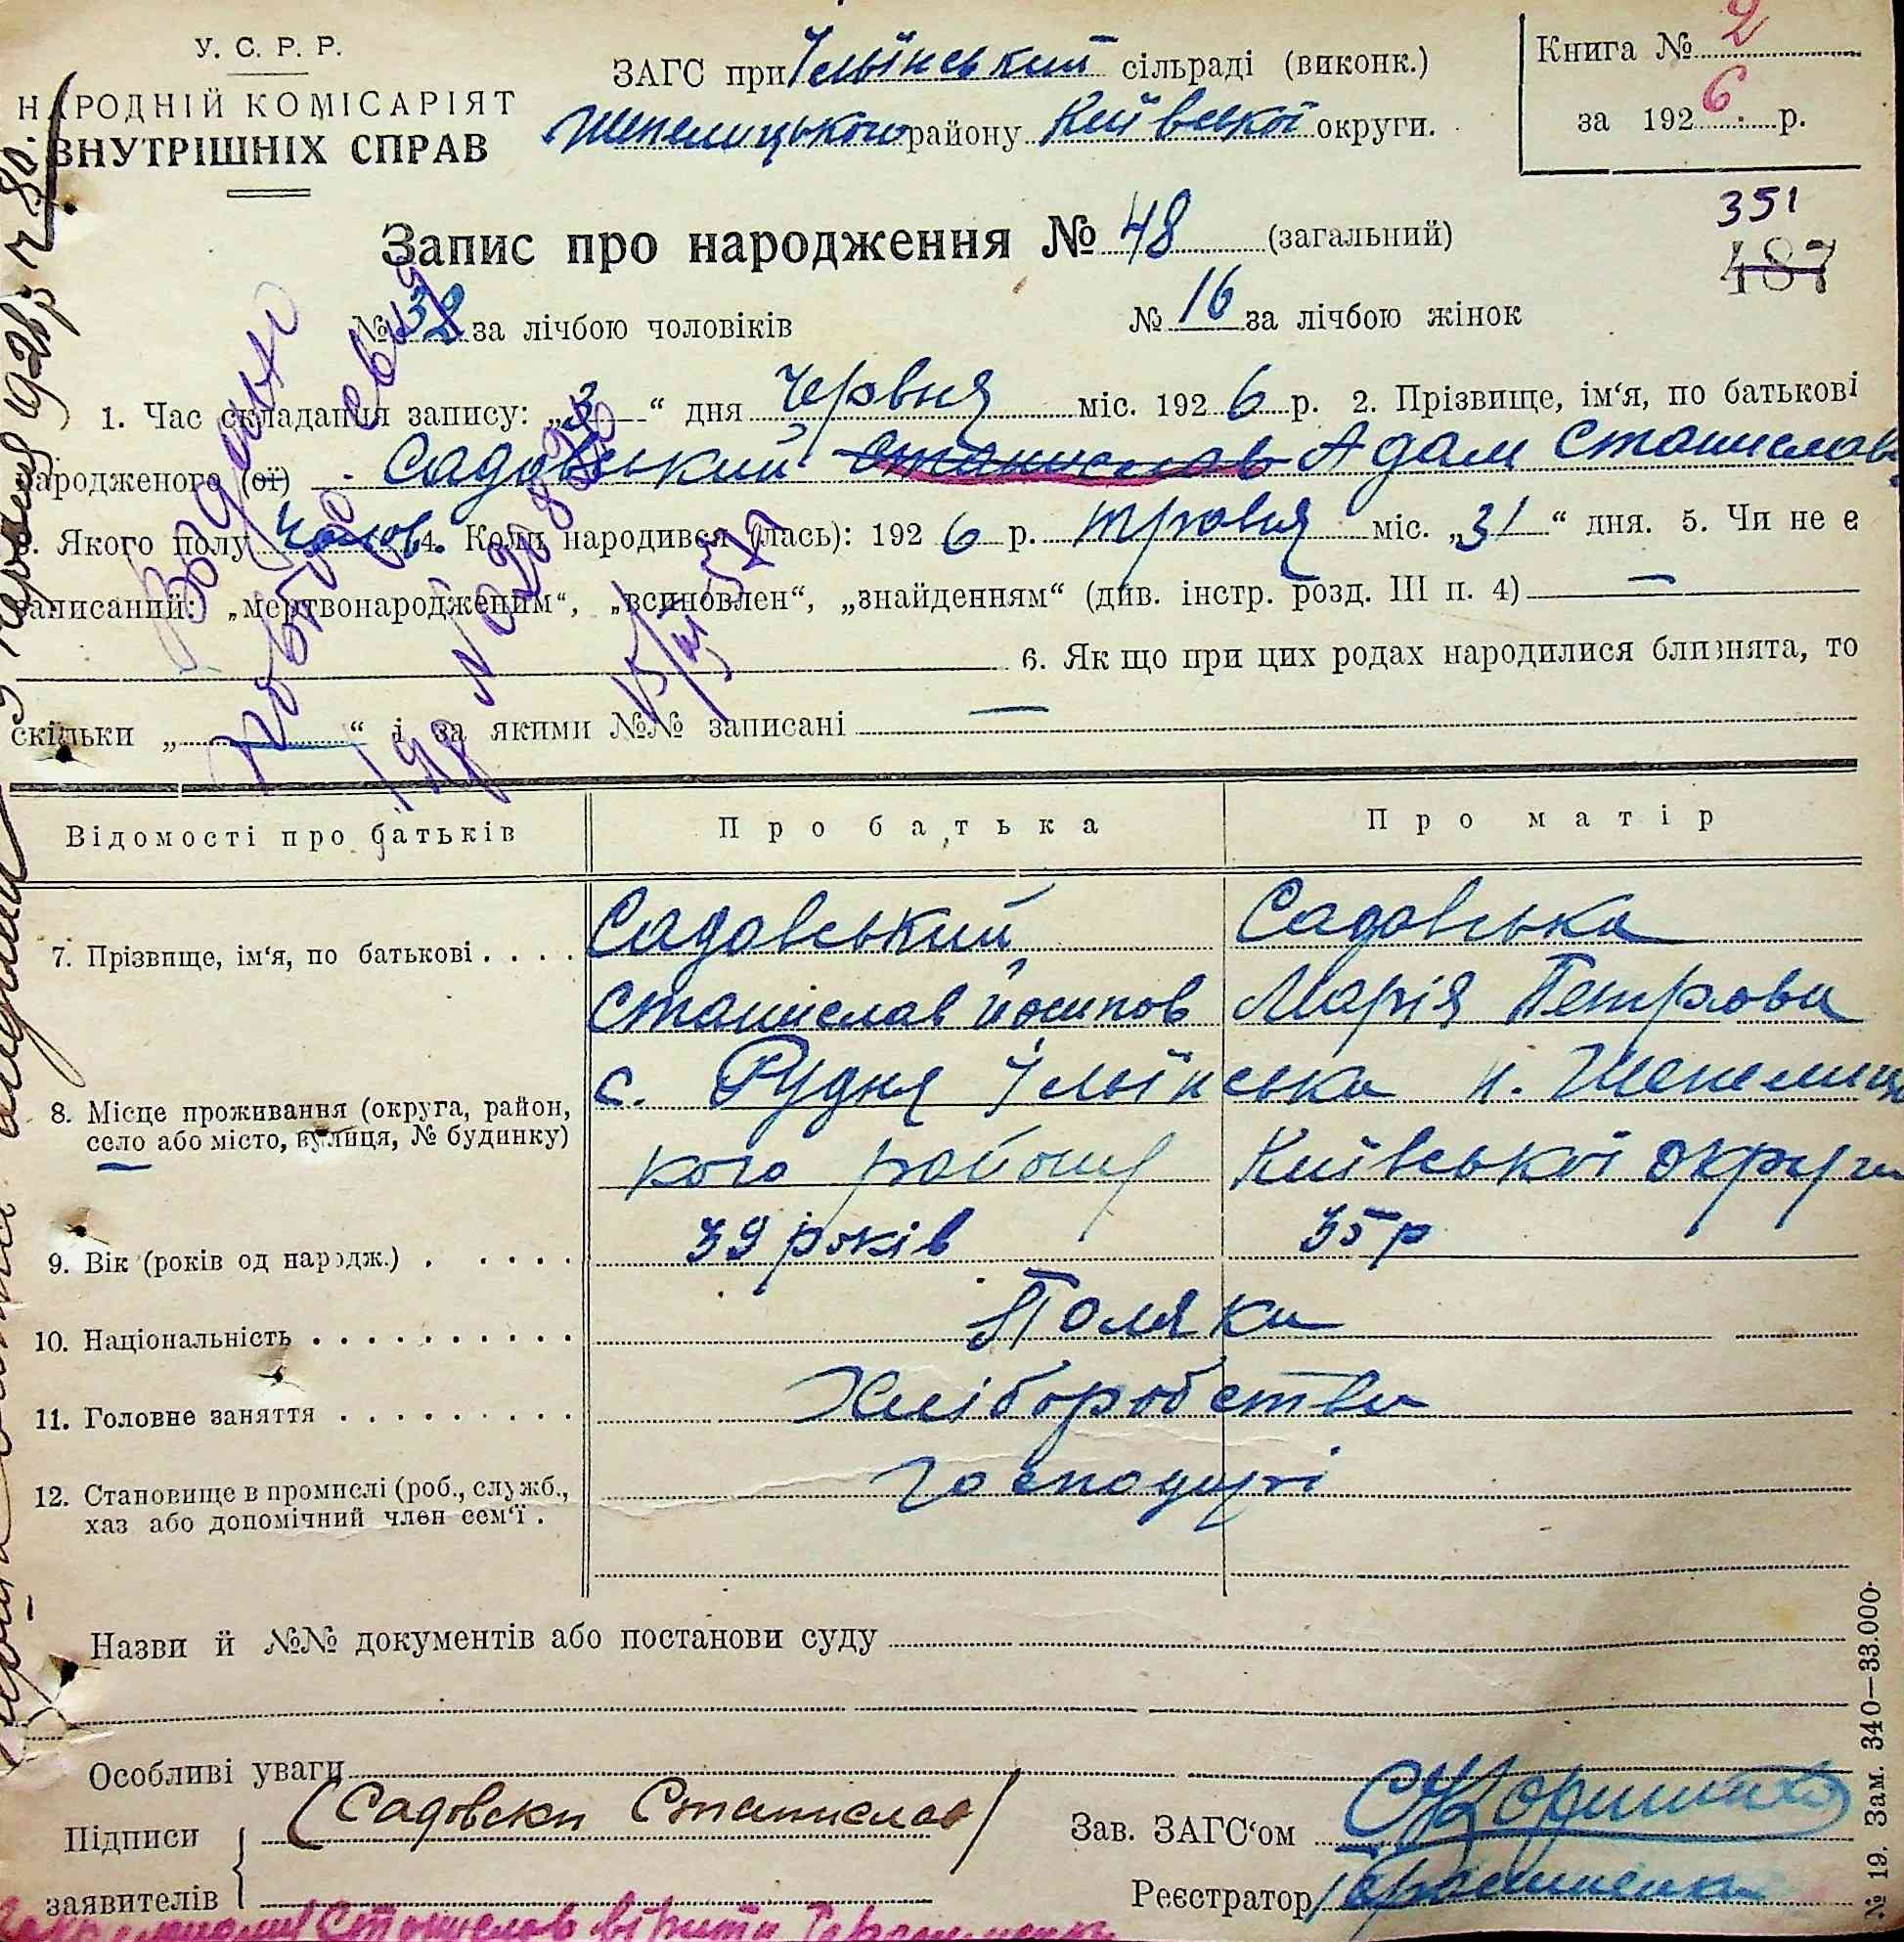 У. С. Р. Р.
НАРОДНІЙ КОМІСАРІЯТ
ВНУТРІШНІХ СПРАВ
ЗАГС при Ільїнський сільраді (виконк.)
Шепелицького району Київської округи.
Книга № 2
за 1926 р.
351
487
Запис про народження № 48 (загальний)
№ 32 за лічбою чоловіків № 16 за лічбою жінок
1. Час складання запису: „3“ дня Червня міс. 1926 р. 2. Прізвище, ім‘я, по батькові
народженого (ої) Садовський Станислав Адам Станиславів
3. Якого полу чолов. 4. Коли народився (лась): 1926 р. травня міс. „31“ дня. 5. Чи не є
записаний: „мертвонародженим“, „всиновлен“, „знайденням“ (див. інстр. розд. III п. 4) —
6. Як що при цих родах народилися близнята, то
скільки „ “ і за якими №№ записані —
Відомості про батьків Про батька Про матір
7. Прізвище, ім‘я, по батькові . . . . Садовський Садовська
Станислав Йосипов Марія Петрова
8. Місце проживання (округа, район, с. Рудня Ільїнська
село або місто, вулиця, № будинку)
кого району Київської округи
9. Вік (років од народж.) . . . . . 39 років 35 р
10. Національність . . . . . . . . . . Поляки
11. Головне заняття . . . . . . . . . Хліборобство
12. Становище в промислі (роб., служб.,
хаз або допомічний член сем‘ї . господарі
Назви й №№ документів або постанови суду
Особливі уваги
Підписи (Садовски Станислав)
заявителів
Зав. ЗАГС‘ом
Реєстратор Герасименко
№ 19. Зам. 340—33.000.
Станислав вірити Герасименко